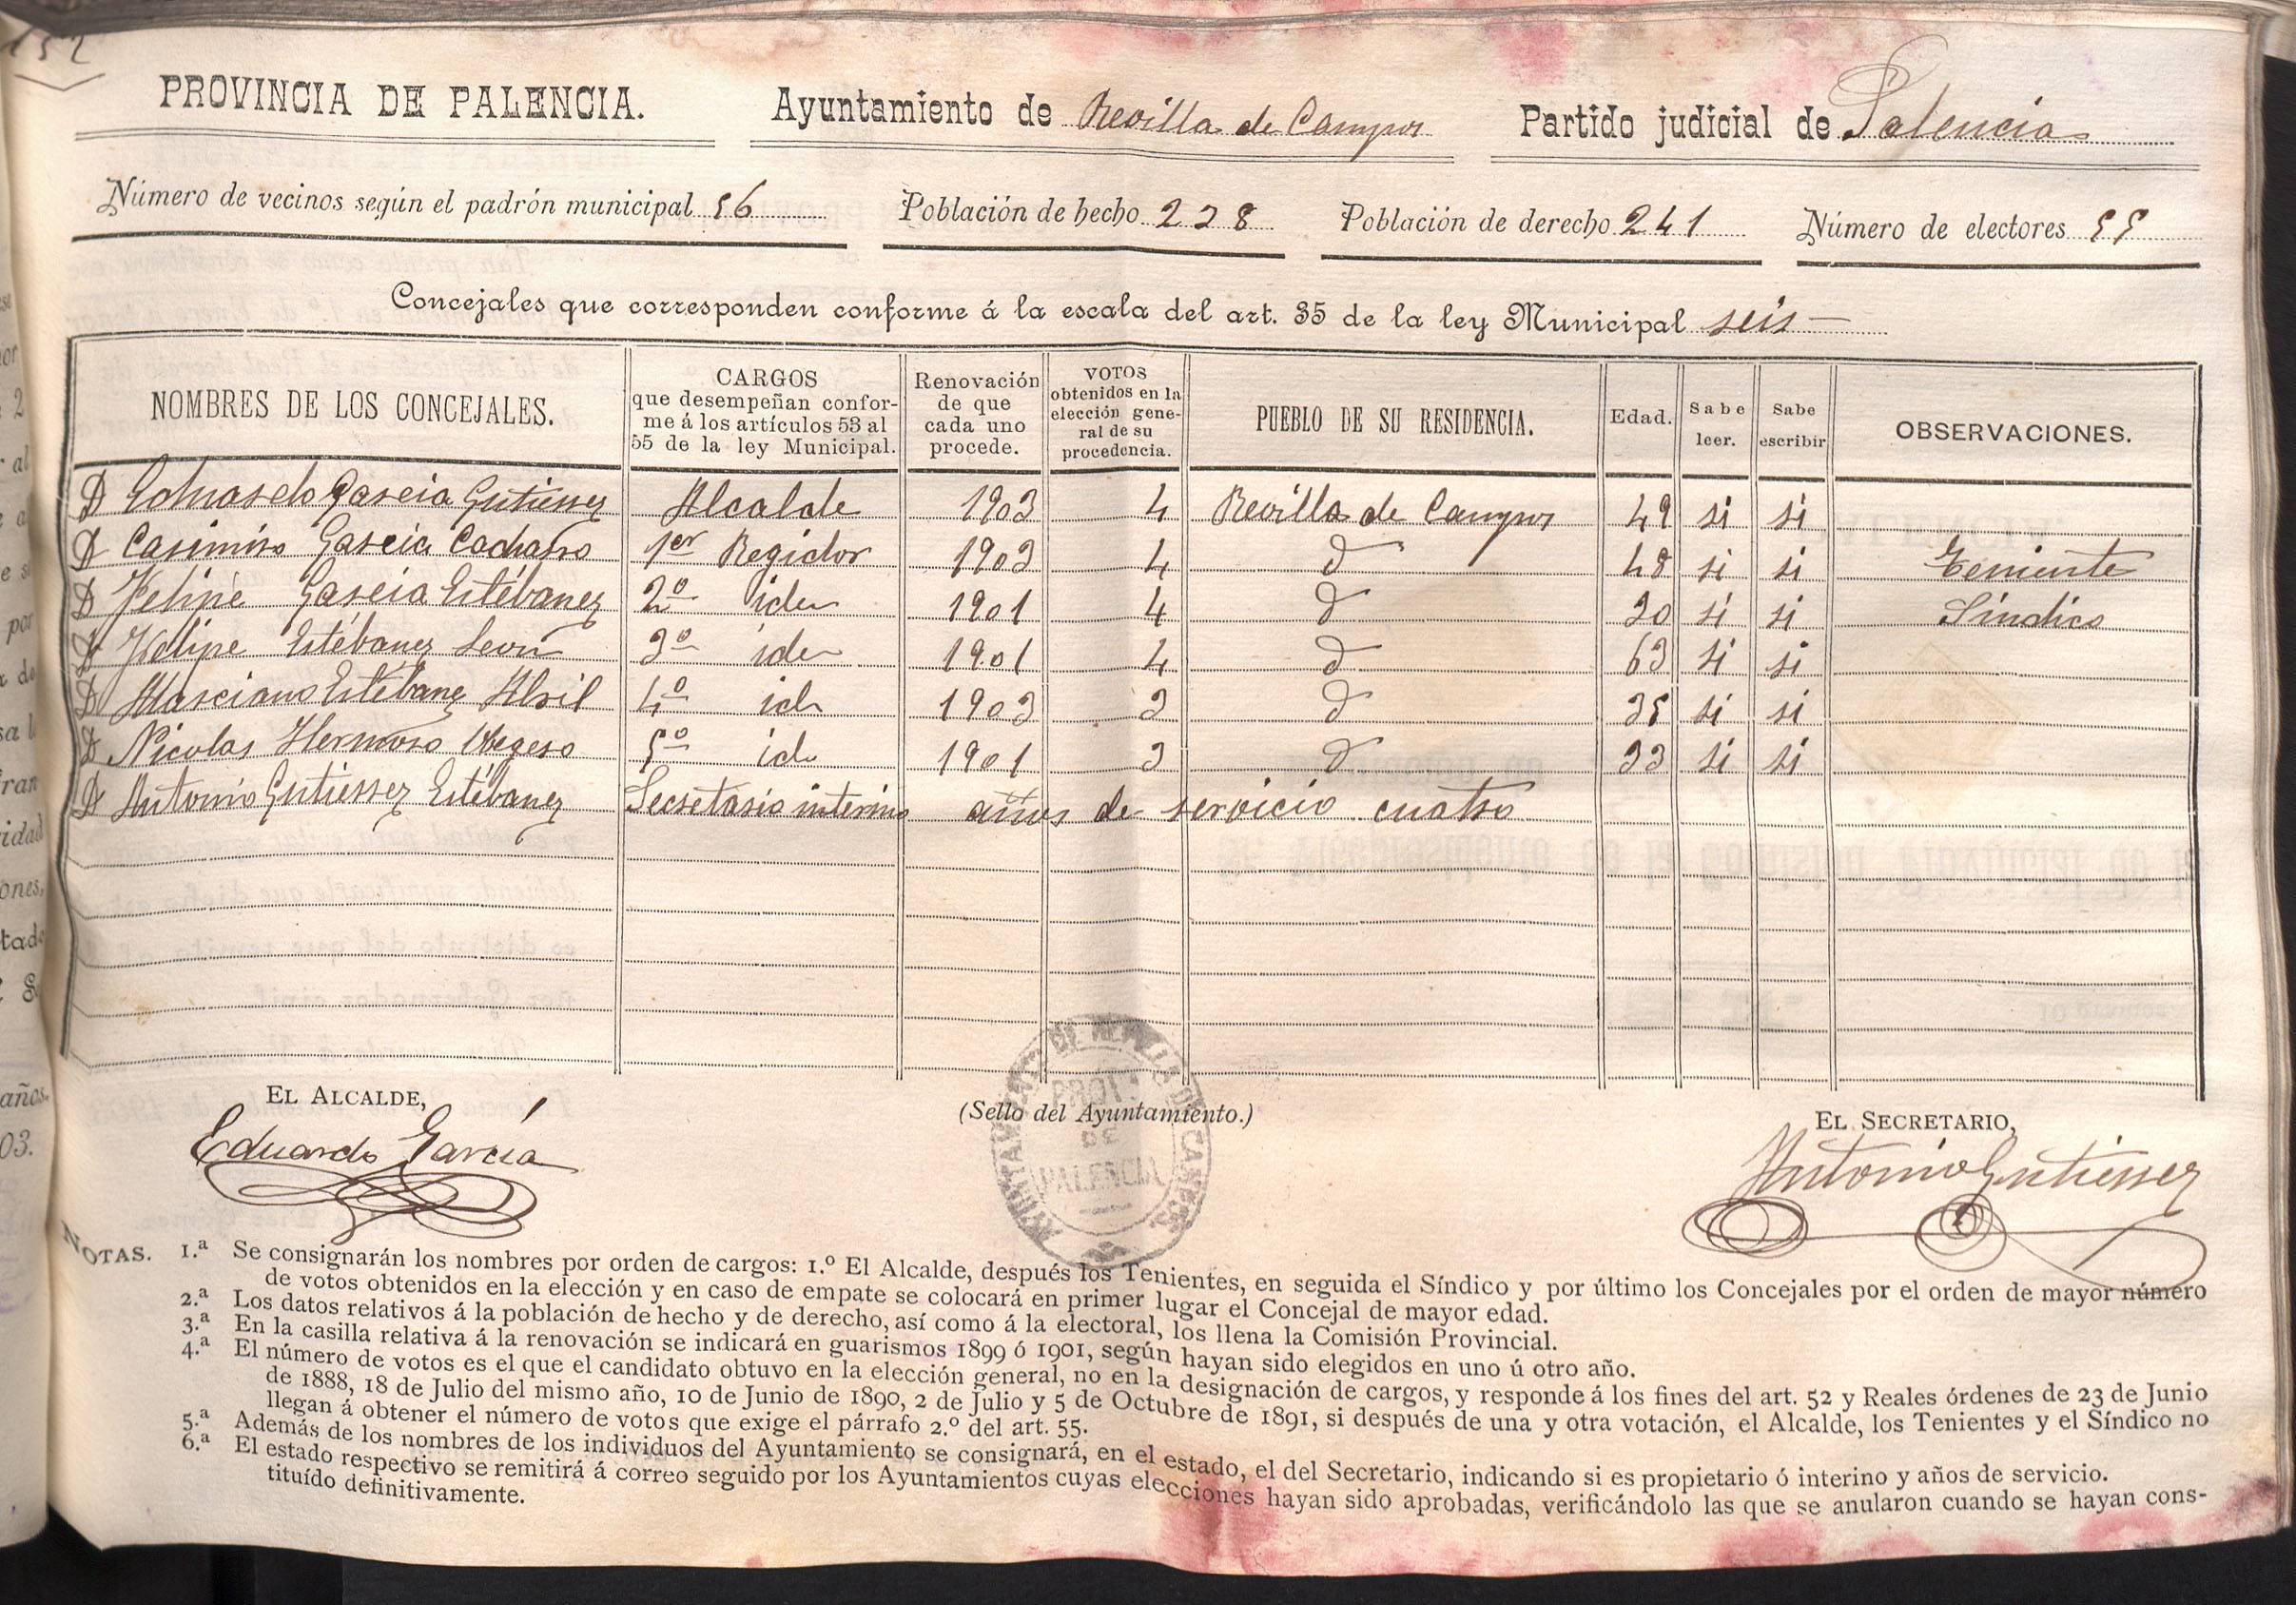 152
PROVINCIA DE PALENCIA. Ayuntamiento de Revilla de Campos Partido judicial de Palencia
Número de vecinos según el padrón municipal 56 Población de hecho 228 Población de derecho 241 Número de electores 55
Concejales que corresponden conforme á la escala del art. 35 de la ley Municipal seis
NOMBRES DE LOS CONCEJALES. CARGOS que desempeñan confor- me á los artículos 53 al 55 de la ley Municipal. Renovación de que cada uno procede. VOTOS obtenidos en la elección gene- ral de su procedencia. PUEBLO DE SU RESIDENCIA. Edad. Sabe leer. Sabe escribir OBSERVACIONES.
D Eduardo Garcia Gutierrez Alcalde 1903 4 Revilla de Campos 49 si si
D Casimiro Garcia Cacharro 1er Regidor 1903 4 d 48 si si Teniente
D Felipe Garcia Estébanez 2º iden 1901 4 d 30 si si Sindico
D Felipe Estébanez León 3º iden 1901 4 d 63 si si
D Marciano Estébanez Abril 4º id 1903 3 d 35 si si
D Nicolas Hermoso 5º id 1901 3 d 33 si si
D Antonio Gutierrez Estébanez Secretario interino años de servicio cuatro
EL ALCALDE,
Eduardo García
(Sello del Ayuntamiento.)
AYUNTAMIENTO DE REVILLA DE CAMPOS
PROV.
DE
PALENCIA
EL SECRETARIO,
Antonio Gutierrez
NOTAS. 1.ª Se consignarán los nombres por orden de cargos: 1.º El Alcalde, después los Tenientes, en seguida el Síndico y por último los Concejales por el orden de mayor número
de votos obtenidos en la elección y en caso de empate se colocará en primer lugar el Concejal de mayor edad.
2.ª Los datos relativos á la población de hecho y de derecho, así como á la electoral, los llena la Comisión Provincial.
3.ª En la casilla relativa á la renovación se indicará en guarismos 1899 ó 1901, según hayan sido elegidos en uno ú otro año.
4.ª El número de votos es el que el candidato obtuvo en la elección general, no en la designación de cargos, y responde á los fines del art. 52 y Reales órdenes de 23 de Junio
de 1888, 18 de Julio del mismo año, 10 de Junio de 1890, 2 de Julio y 5 de Octubre de 1891, si después de una y otra votación, el Alcalde, los Tenientes y el Síndico no
llegan á obtener el número de votos que exige el párrafo 2.º del art. 55.
5.ª Además de los nombres de los individuos del Ayuntamiento se consignará, en el estado, el del Secretario, indicando si es propietario ó interino y años de servicio.
6.ª El estado respectivo se remitirá á correo seguido por los Ayuntamientos cuyas elecciones hayan sido aprobadas, verificándolo las que se anularon cuando se hayan cons-
tituído definitivamente.